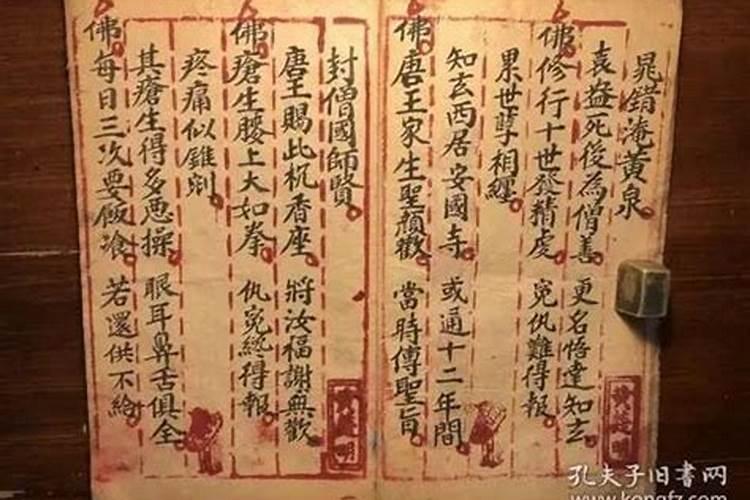 晁錯淹黄泉
袁盎死後為僧善 更名悟達知玄
佛修行十世發精虔 寃仇難得報
累世孽相纏
知玄西居安國寺 或通十二年間
佛唐王家生聖顏歡 當時傳聖旨
封僧國師賢
唐王賜此枕香座 將汝福謝無歡
佛瘡生腰上大如拳 仇寃終得報
疼痛似錐剜
其瘡生得多恶操 眼耳鼻舌俱全
佛每日三次要飯飡 若還供不給
孔夫子旧书网